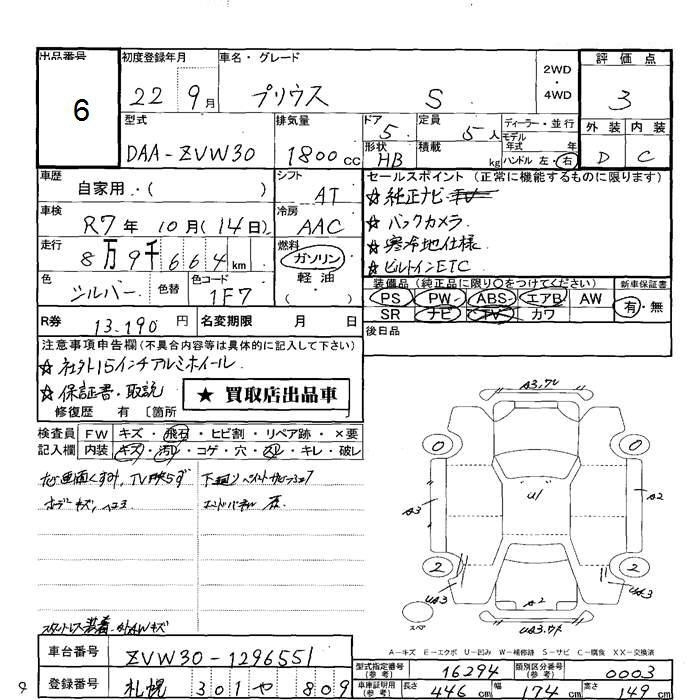 出品番号 初度登録年月 車名・グレード 2WD・4WD 評価点
6 22 9月 プリウス S 3
型式 排気量 ドア 定員 ディーラー・並行 外装 内装
DAA-ZVW30 1800cc 5 5人 モデル年式 年
形状 HB 積載 kg ハンドル 左・右 D C
車歴 自家用・( ) シフト AT
セールスポイント (正常に機能するものに限ります)
☆純正ナビ TV
☆バックカメラ
☆寒冷地仕様
☆ビルトインETC
車検 R7年 10月(14日) 冷房 AAC
走行 8万9千664km 燃料 ガソリン 軽油 ( )
色 シルバー 色替 色コード 1F7
装備品 (純正品に限り○をつけてください) 新車保証書
PS PW ABS エアB AW 有・無
SR ナビ TV カワ
R券 13.190円 名変期限 月 日
後日品
注意事項申告欄(不具合内容等は具体的に記入して下さい)
☆社外15インチアルミホイール
☆保証書・取説
★ 買取店出品車
修復歴 有 〔箇所
検査員記入欄 FW キズ・飛石・ヒビ割・リペア跡・×要
内装 キズ・汚レ・コゲ・穴・スレ・キレ・破レ
A3,ワレ
0 0
A3 U1 A2
2 2
UA3 A2 UA3
スペア UA3.ワレ
A-キズ E-エクボ U-凹み W-補修跡 S-サビ C-腐食 XX-交換済
車台番号 ZVW30-1296551
型式指定番号(参考) 16294 類別区分番号(参考) 0003
登録番号 札幌 301 や 809
車庫証明用(参考) 長さ 446cm 幅 174cm 高さ 149cm